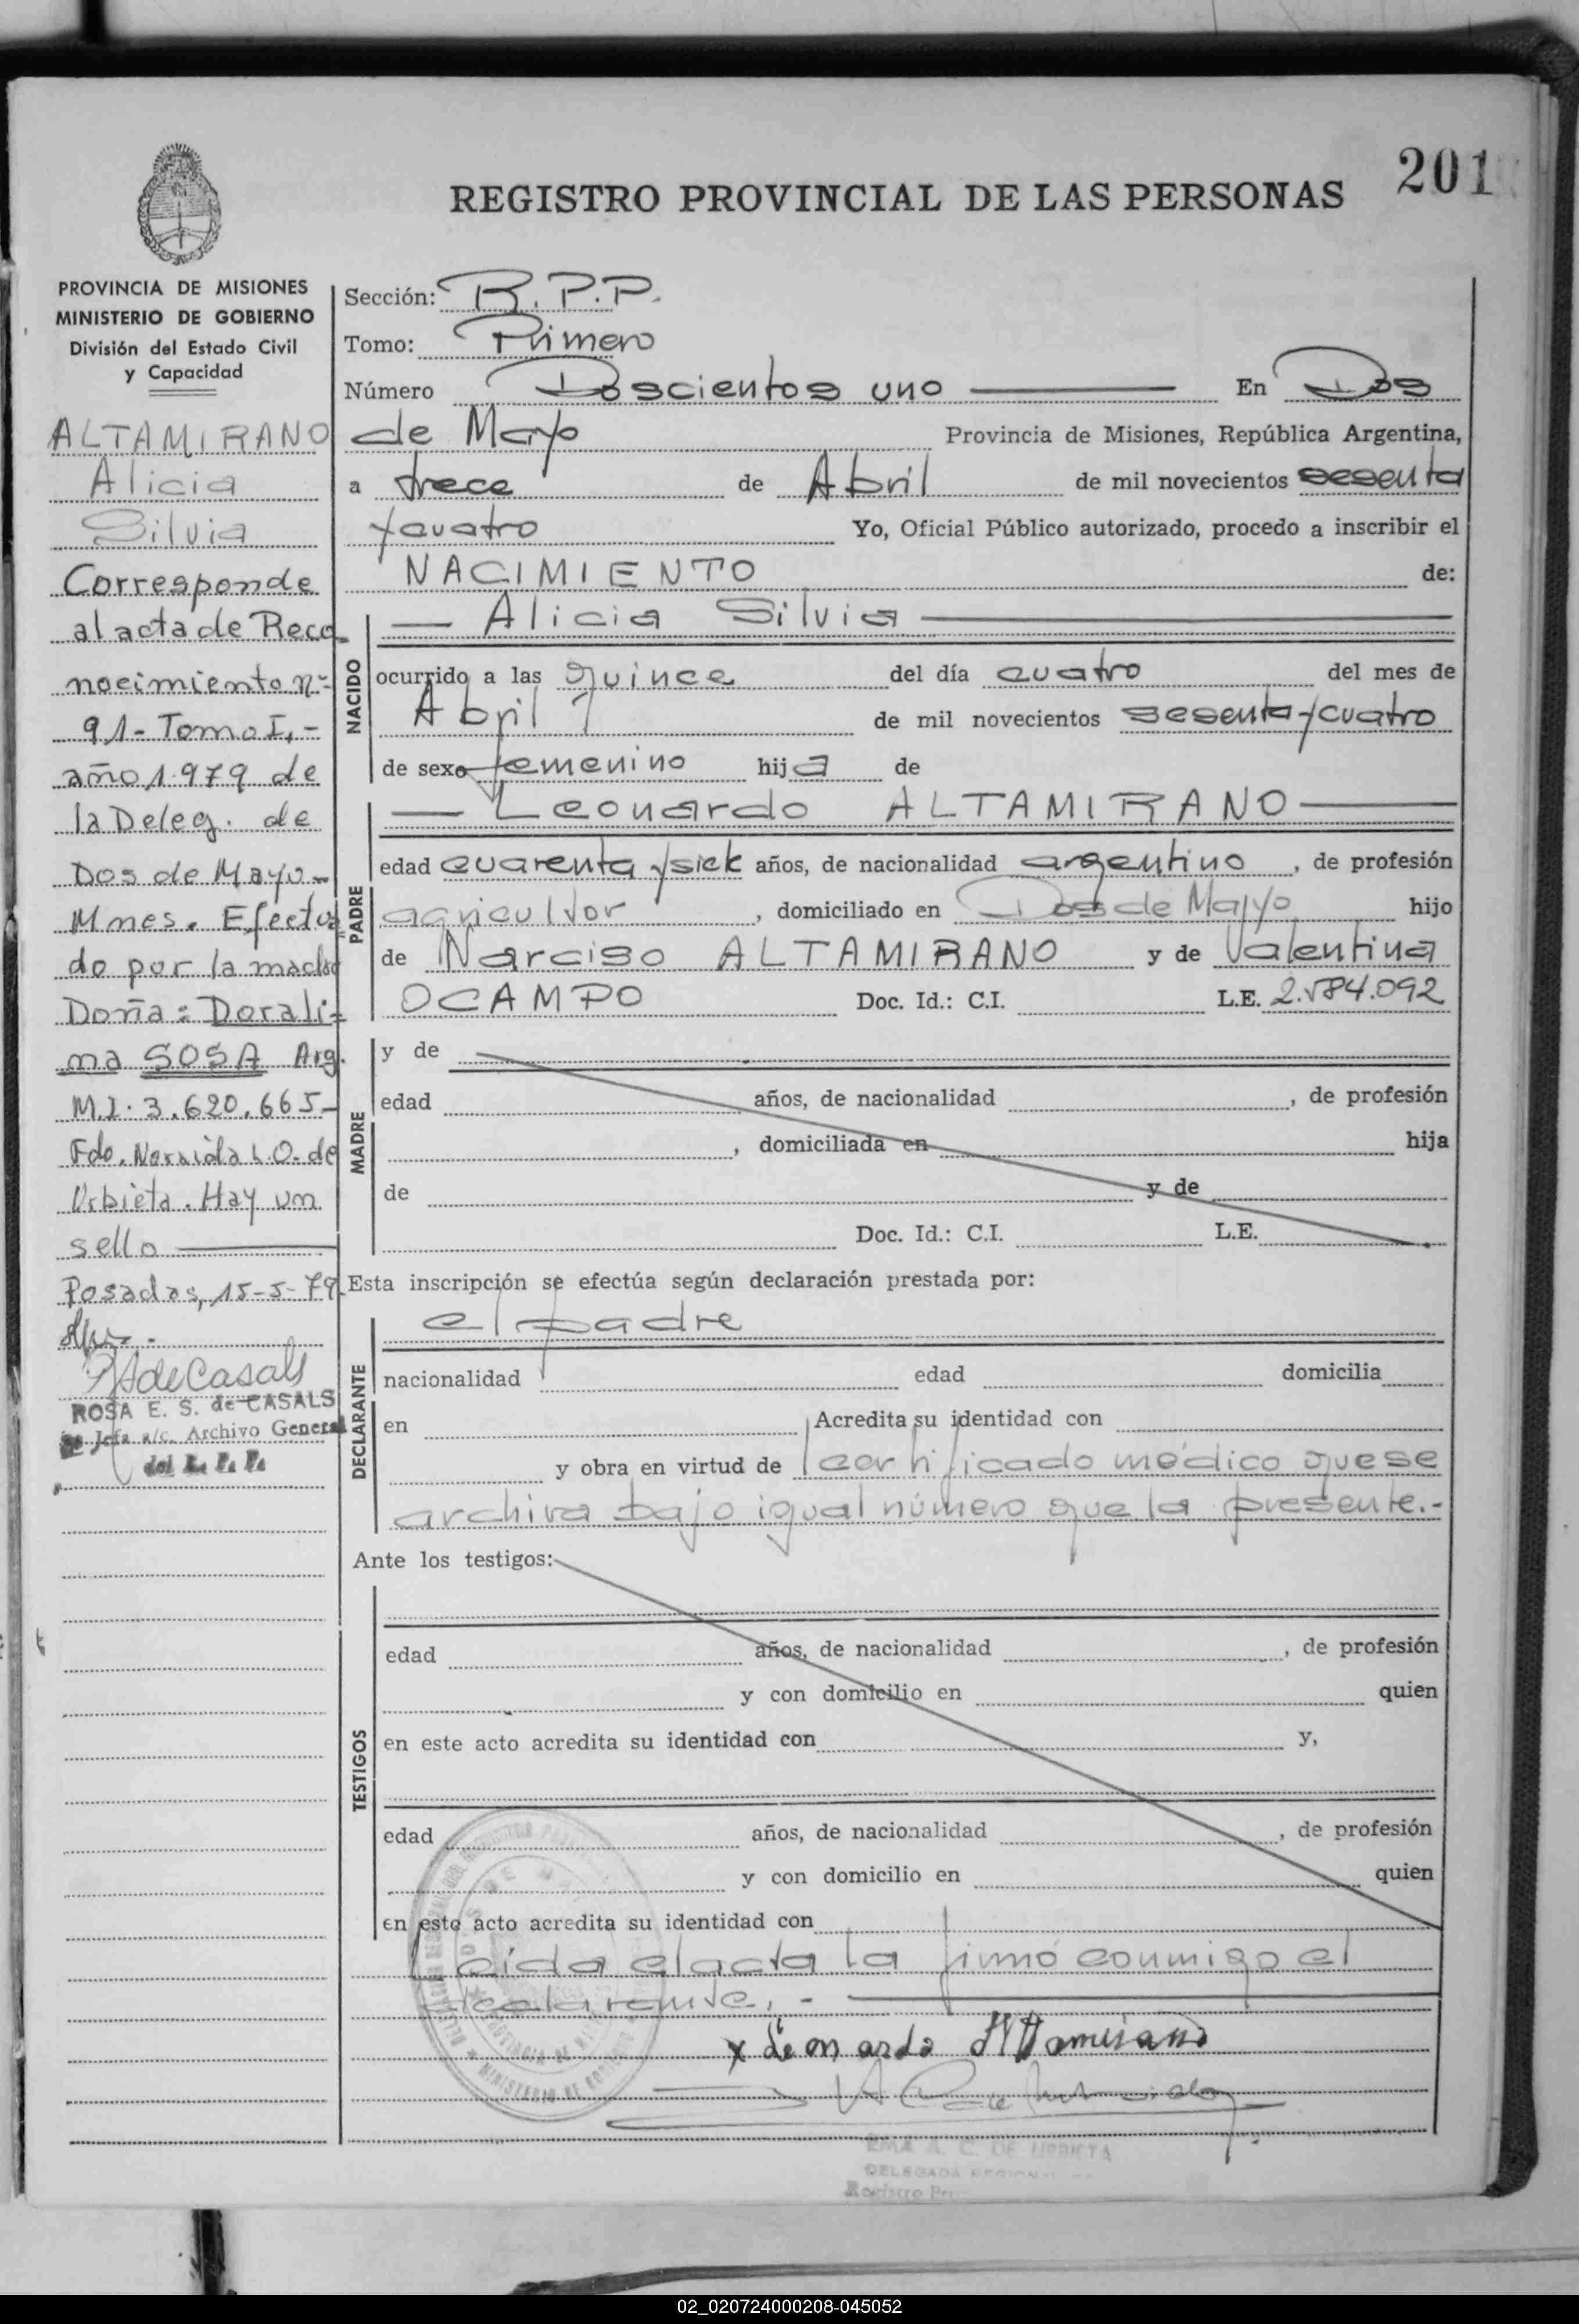 201
REGISTRO PROVINCIAL DE LAS PERSONAS
PROVINCIA DE MISIONES
MINISTERIO DE GOBIERNO
División del Estado Civil
y Capacidad
ALTAMIRANO
Alicia
Silvia
Corresponde
al acta de Reco-
nocimiento nº
91- Tomo I.-
año 1.979 de
la Deleg. de
Dos de Mayo-
Mnes. Efectua
do por la madre
Doña: Dorali-
na SOSA Arg.
M.I. 3.620.665-
Fdo. L.O. de
Urbieta. Hay un
sello
Posadas, 15-5-79
de Casals
ROSA E. S. de CASALS
Jefa a/c. Archivo General
del R. P. P.
Sección: R.P.P.
Tomo: Primero
Número Doscientos uno En Dos
de Mayo Provincia de Misiones, República Argentina,
a trece de Abril de mil novecientos sesenta
y cuatro Yo, Oficial Público autorizado, procedo a inscribir el
NACIMIENTO de:
NACIDO
Alicia Silvia
ocurrido a las quince del día cuatro del mes de
Abril de mil novecientos sesenta y cuatro
de sexo femenino hija de
PADRE
Leonardo ALTAMIRANO
edad cuarenta y siete años, de nacionalidad argentino, de profesión
agricultor, domiciliado en Dos de Mayo hijo
de Narciso ALTAMIRANO y de Valentina
OCAMPO Doc. Id.: C.I. L.E. 2.584.092
MADRE
y de
edad años, de nacionalidad , de profesión
, domiciliada en hija
de y de
Doc. Id.: C.I. L.E.
Esta inscripción se efectúa según declaración prestada por:
DECLARANTE
el padre
nacionalidad edad domicilia
en Acredita su identidad con
y obra en virtud de certificado médico que se
archiva bajo igual número que la presente.-
Ante los testigos:
TESTIGOS
edad años, de nacionalidad , de profesión
y con domicilio en quien
en este acto acredita su identidad con y,
edad años, de nacionalidad , de profesión
y con domicilio en quien
en este acto acredita su identidad con
Leída el acta la firmó conmigo el
declarante.-
x Leonardo Altamirano
EMA A. C. DE URBIETA
DELEGADA
Registro
MINISTERIO DE GOBIERNO
02_020724000208-045052